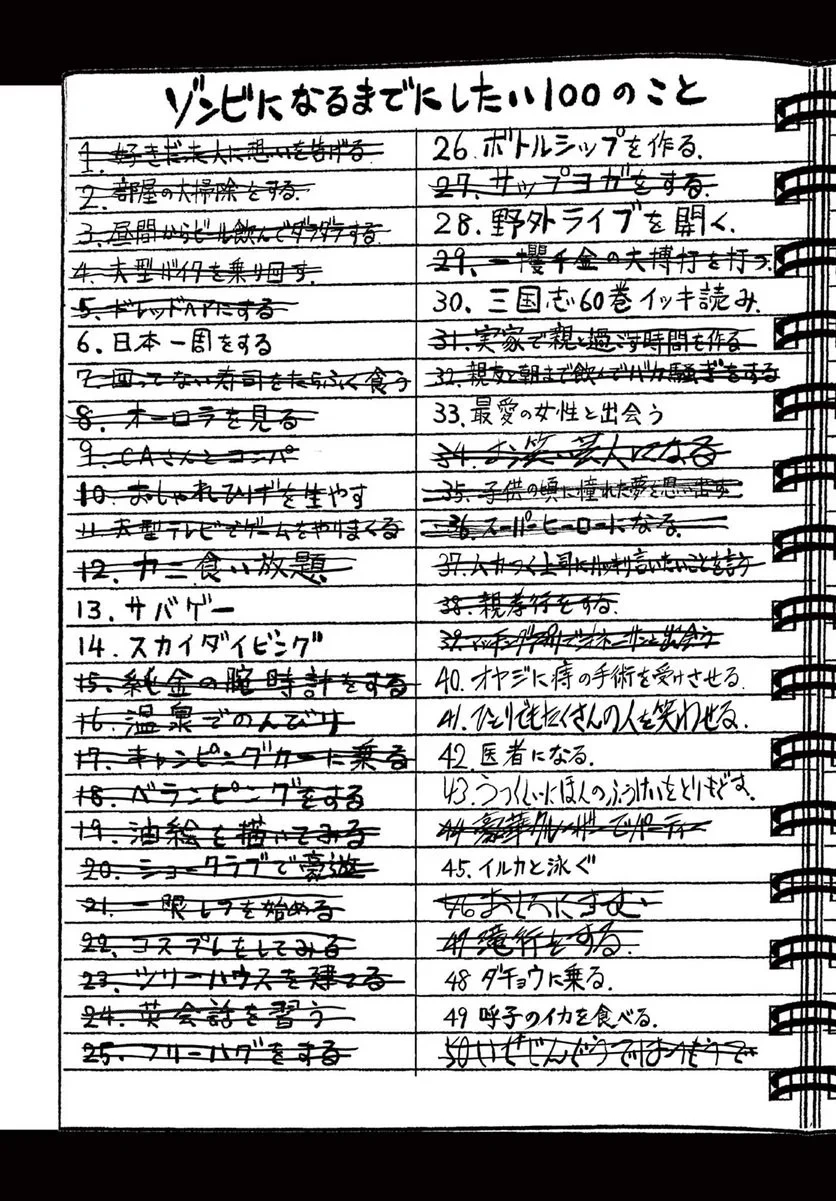 ゾンビになるまでにしたい100のこと
1. 好きだった人に想いを告げる
2. 部屋の大掃除をする
3. 昼間からビール飲んでダラダラする
4. 大型バイクを乗り回す
5. ドレッドヘアにする
6. 日本一周をする
7. 回ってない寿司をたらふく食う
8. オーロラを見る
9. CAさんとコンパ
10. おしゃれひげを生やす
11. 大型テレビでゲームをやりまくる
12. カニ食い放題
13. サバゲー
14. スカイダイビング
15. 純金の腕時計をする
16. 温泉でのんびり
17. キャンピングカーに乗る
18. ベランピングをする
19. 油絵を描いてみる
20. ショークラブで豪遊
21. 一眼レフを始める
22. コスプレをしてみる
23. ツリーハウスを建てる
24. 英会話を習う
25. フリーハグをする
26. ボトルシップを作る.
27. サップヨガをする.
28. 野外ライブを開く.
29. 一攫千金の大博打を打つ.
30. 三国志60巻イッキ読み.
31. 実家で親と過ごす時間を作る
32. 親友と朝まで飲んでバカ騒ぎをする
33. 最愛の女性と出会う
34. お笑い芸人になる
35. 子供の頃に憧れた夢を思い出す
36. スーパーヒーローになる.
37. ムカつく上司にハッキリ言いたいことを言う
38. 親孝行をする.
39. マッチングアプリでオネーサンと出会う
40. オヤジに痔の手術を受けさせる.
41. ひとりでもたくさんの人を笑わせる.
42. 医者になる.
43. うつくしいにほんのふうけいをとりもどす.
44 豪華クルーザーでパーティー
45. イルカと泳ぐ
46 おしろにすむ
47 滝行をする.
48 ダチョウに乗る.
49 呼子のイカを食べる.
50